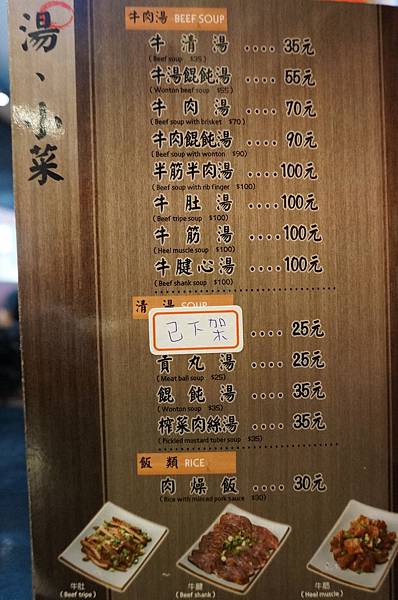 湯、小菜
牛肉湯 BEEF SOUP
牛清湯 .... 35元
(Beef soup $35)
牛湯餛飩湯 .... 55元
(Wonton beef soup $55)
牛肉湯 .... 70元
(Beef soup with brisket $70)
牛肉餛飩湯 .... 90元
(Beef soup with wonton $90)
半筋半肉湯 ....100元
(Beef soup with rib finger $100)
牛肚湯 ....100元
(Beef tripe soup $100)
牛筋湯 ....100元
(Heel muscle soup $100)
牛腱心湯 ....100元
(Beef shank soup $100)
清湯 SOUP
已下架 .... 25元
貢丸湯 .... 25元
(Meat ball soup $25)
餛飩湯 .... 35元
(Wonton soup $35)
榨菜肉絲湯 .... 35元
(Pickled mustard tuber soup $35)
飯類 RICE
肉燥飯 .... 30元
(Rice with minced pork sauce $30)
牛肚
(Beef tripe)
牛腱
(Beef shank)
牛筋
(Heel muscle)